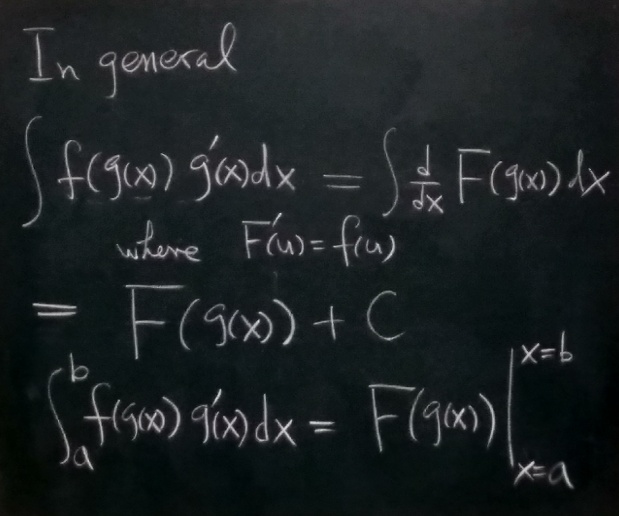 In general
∫ f(g(x)) g'(x) dx = ∫ d/dx F(g(x)) dx
where F'(u) = f(u)
= F(g(x)) + C
∫_a^b f(g(x)) g'(x) dx = F(g(x)) |_{x=a}^{x=b}